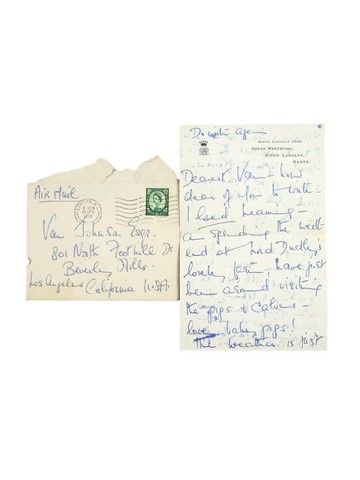 Air Mail
Van Johnson Esqr.
801 North Foothill Dr
Beverley Hills.
Los Angeles California U.S.A.
Do write again
KING'S LANGLEY
GREAT WESTWOOD,
KING'S LANGLEY,
HERTS.
Dearest Van, how
dear of you to write -
I loved hearing -
am spending the week
end at Lord Dudley's
lovely farm, have just
been around visiting
the pigs & calves -
love baby pigs!
The weather is just